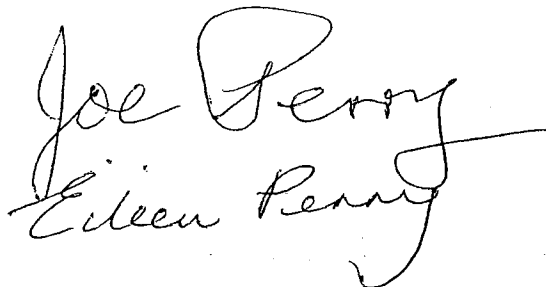 Joe Perry
Eileen Perry